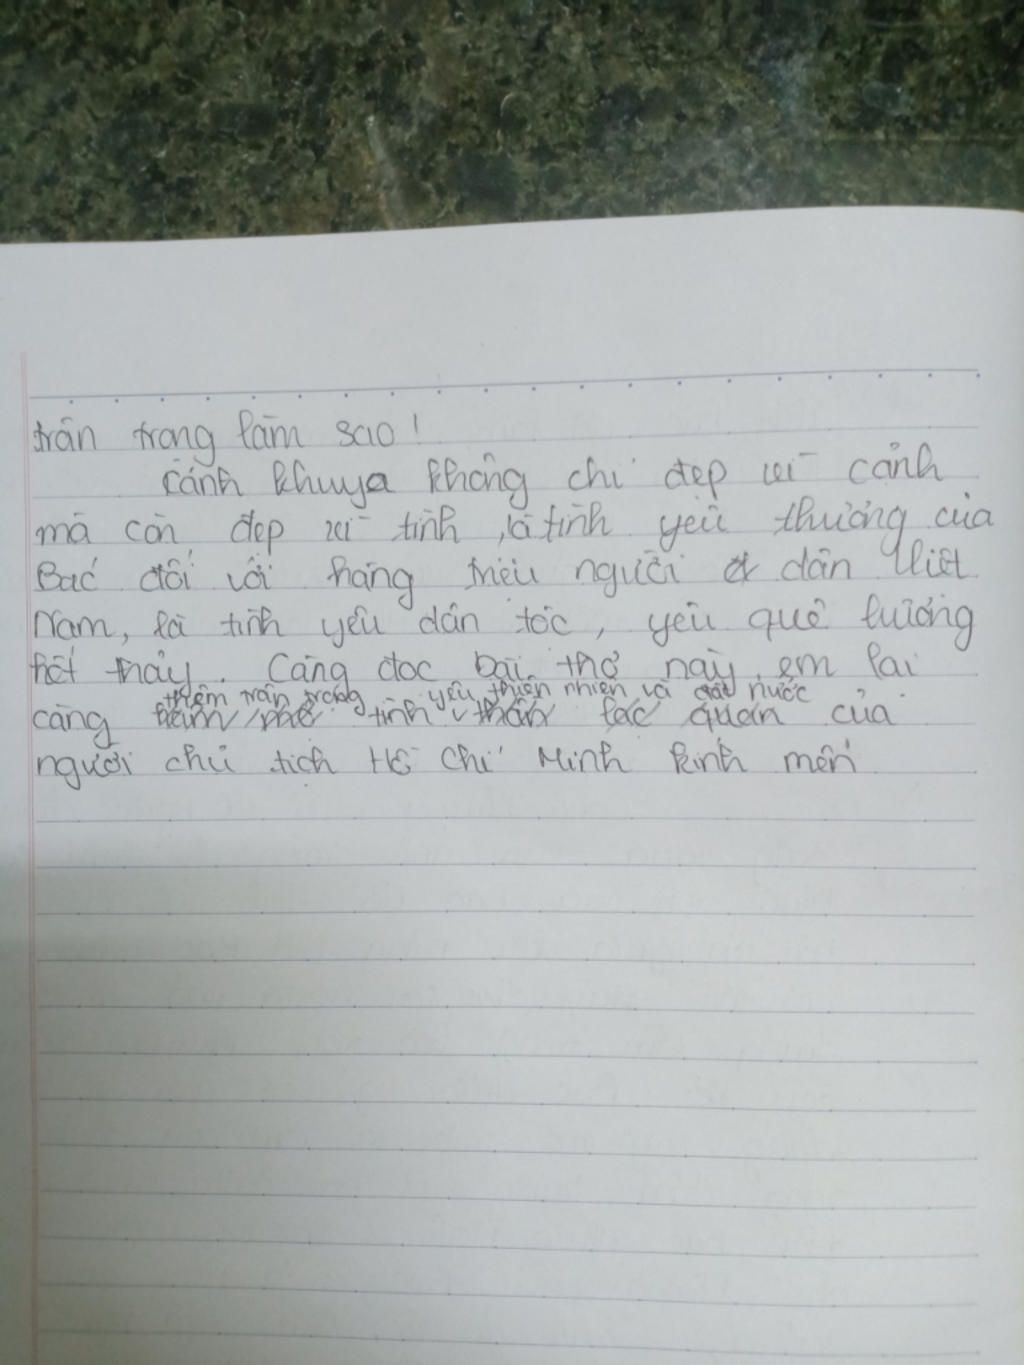 trân trọng làm sao!
Cảnh khuya không chỉ đẹp vì cảnh
mà còn đẹp vì tình, là tình yêu thương của
Bác đối với hàng triệu người dân Việt
Nam, là tình yêu dân tộc, yêu quê hương
hết thảy. Càng đọc bài thơ này, em lại
thêm trân trọng yêu thiên nhiên và đất nước
càng tình của
người chủ tịch Hồ Chí Minh kính mến